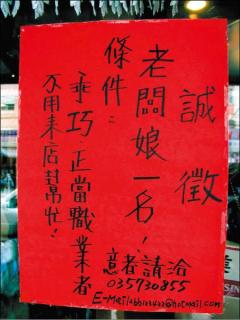 誠徵
老闆娘一名!
條件:
乖巧.正當職業者
不用来店幫忙!
意者請洽
035730855
E-Mail